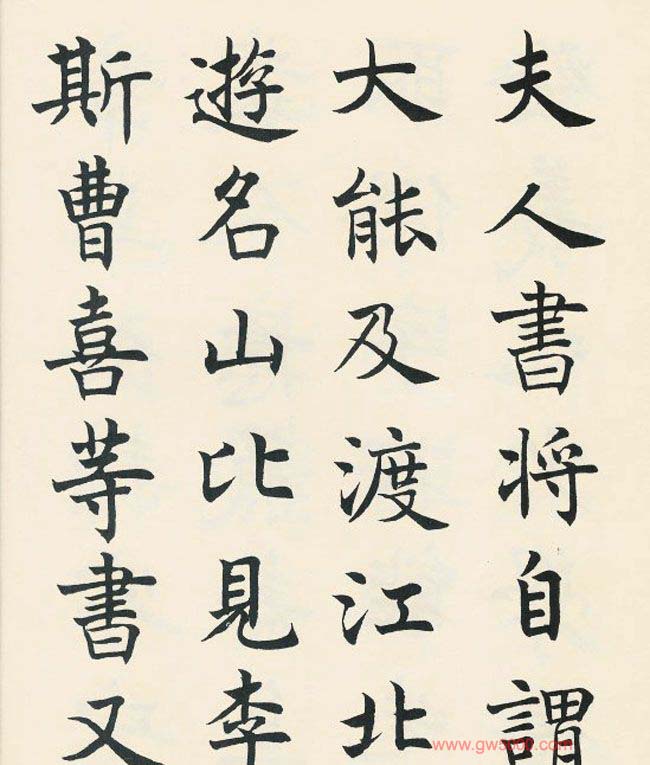 夫人書将自謂
大能及渡江北
遊名山比見李
斯曹喜等書又
www.gw5000.com